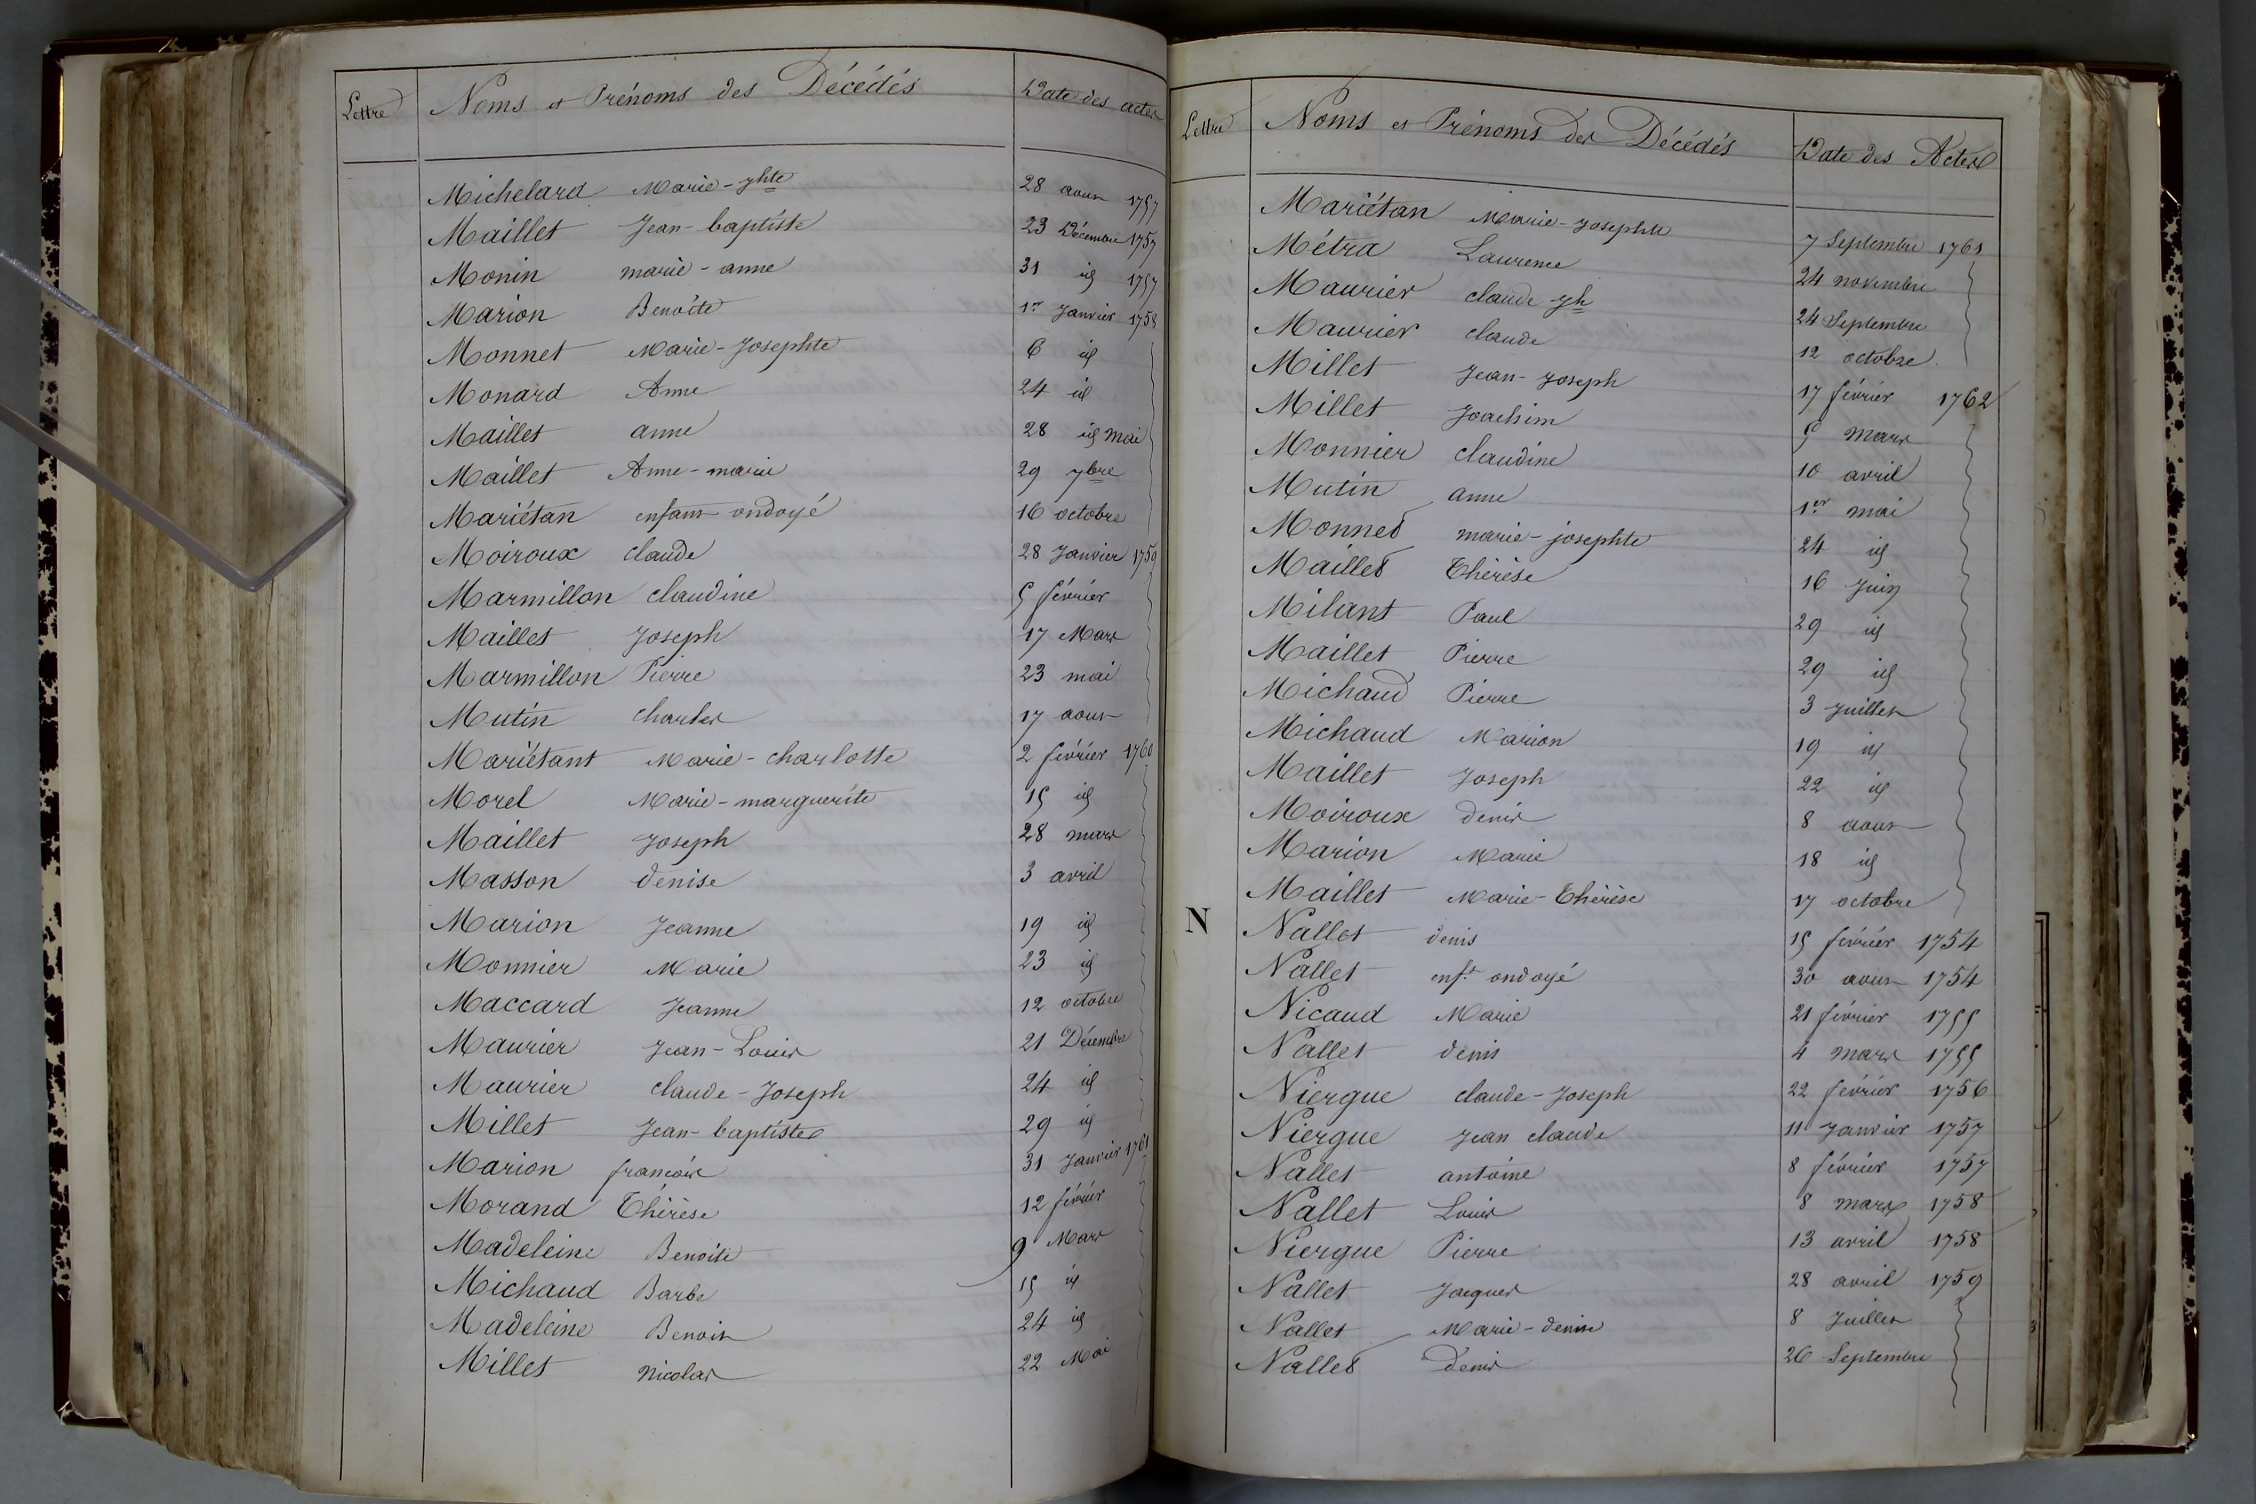 Lettre Noms et Prénoms des Décédés Date des actes
Michelard Marie-jhte 28 aout 1757
Maillet Jean-baptiste 23 Décembre 1757
Monin marie-anne 31 id 1757
Marion Benoîte 1er Janvier 1758
Monnet Marie-Josephte 6 id
Monard Anne 24 id
Maillet anne 28 id mai
Maillet Anne-marie 29 7bre
Mariétan enfant ondoyé 16 octobre
Moiroux claude 28 Janvier 1759
Marmillon claudine 5 février
Maillet Joseph 17 Mars
Marmillon Pierre 23 mai
Mutin charles 17 aout
Mariétant Marie-charlotte 2 février 1760
Morel Marie-marguerite 15 id
Maillet Joseph 28 mars
Masson denise 3 avril
Marion Jeanne 19 id
Monnier Marie 23 id
Maccard Jeanne 12 octobre
Maurier Jean-Louis 21 Décembre
Maurier claude-Joseph 24 id
Millet Jean-baptiste 29 id
Marion francois 31 Janvier 1761
Morand Thérèse 12 février
Madeleine Benoite 9 Mars
Michaud Barbe 15 id
Madeleine Benoit 24 id
Millet Nicolas 22 Mai
Lettre Noms et Prénoms des Décédés Date des Actes
Mariétan Marie-Josephte 7 Septembre 1761
Métra Laurence 24 novembre
Maurier claude-jh 24 Septembre
Maurier claude 12 octobre
Millet Jean-Joseph 17 février 1762
Millet Joachim 5 mars
Monnier claudine 10 avril
Mutin anne 1er mai
Monnet marie-josephte 24 id
Maillet Thérèse 16 Juin
Milant Paul 29 id
Maillet Pierre 29 id
Michaud Pierre 3 Juillet
Michaud Marion 19 id
Maillet Joseph 22 id
Moiroux denis 8 aout
Marion Marie 18 id
Maillet Marie-Thérèse 17 octobre
N Nallet denis 15 février 1754
Nallet enft ondoyé 30 aout 1754
Nicaud Marie 21 février 1755
Nallet denis 4 mars 1755
Niergue claude-Joseph 22 février 1756
Niergue Jean claude 11 Janvier 1757
Nallet antoine 8 février 1757
Nallet Louis 8 mars 1758
Niergue Pierre 13 avril 1758
Nallet Jacques 28 avril 1759
Nallet Marie-denise 8 Juillet
Nallet Denis 26 Septembre